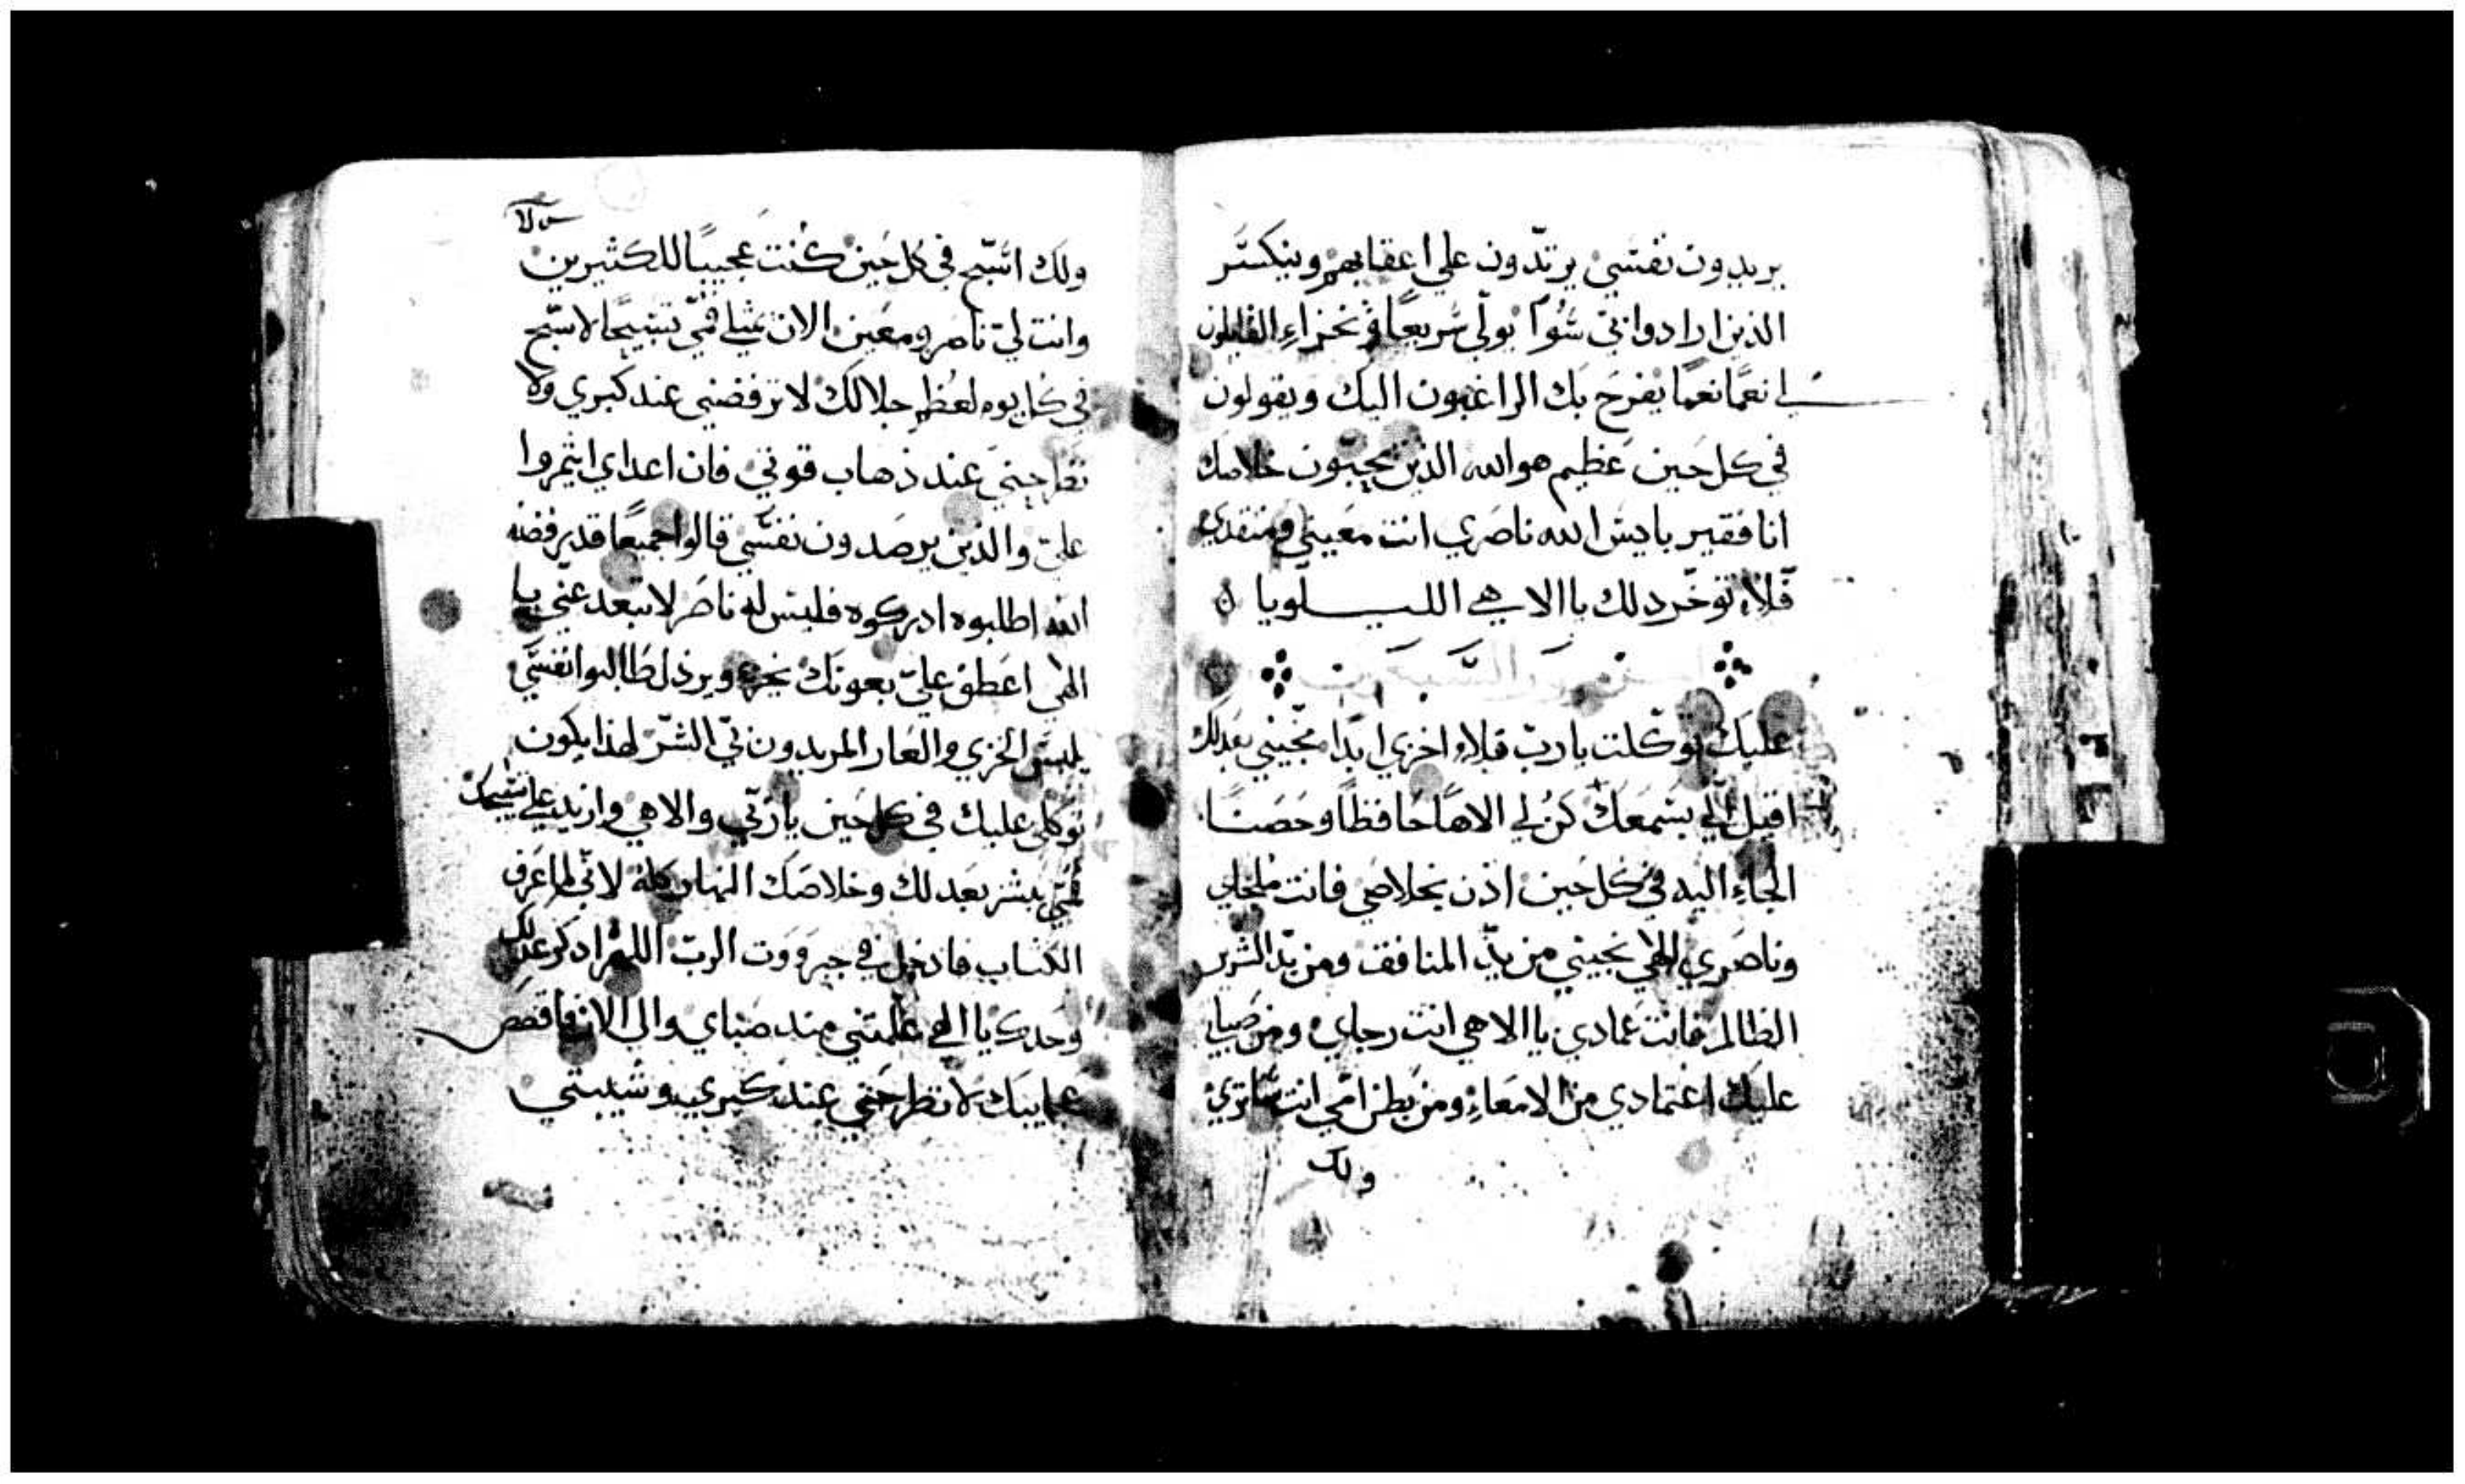 يريدون نفسي يرتدون علي اعقابهم وينكسر
الذين ارادوا بي سُوا يولي سريعًا في خزاءِ القايلون
لي نعمًا نعمًا يفرح بك الراغبون اليك ويقولون
في كل حين عظيم هو الله الذين يحبون خلاصك
انا فقير بايس الله ناصري انت معيني ومنقدي
فلا توخر دلك يا الاهي الليلويا
عليك توكلت يارب فلا اخزي ابدًا نجيني بعدلك
اقبل الي بسمعك كن لي الاهًا حافظًا وحصنًا
الجاءِ اليه في كل حين اذن بخلاصي فانت ملجاي
وناصري الهي نجيني من يد المنافق ومن يد الشرير
الظالم فانت عمادي يا الاهي انت رجاي ومن صباي
عليك اعتمادي من الامعاءِ ومن بطن امي انت ساتري
ولك
ولك اسبح في كل حين كنت عجيبًا للكثيرين
وانت لي ناصر ومعين الان يمتلي فمي تسبيحًا لاسبح
في كل يوم لعظم جلالك لا ترفضني عند كبري ولا
تطرحني عند ذهاب قوتي فان اعداي ايتمروا
علي والذين يرصدون نفسي قالوا جميعًا قد رفضه
الله اطلبوه ادركوه فليس له ناصر لا تبعد عني يا
الهي اعطف علي بعونك يخزي ويرذل طالبوا نفسي
يلبس الخزي والعار المريدون بي الشر لهذا يكون
توكلي عليك في كل حين يا ربي والاهي وازيد علي تسبيحك
فمي يبشر بعدلك وخلاصك النهار كله لاني لم اعرف
الكتاب فادخل في جبروت الرب اللهم ادكر عدلك
وحدك يا الهي علمتني مند صباي والي الان فاقصص
عجايبك لا تطرحني عند كبري وشيبتي